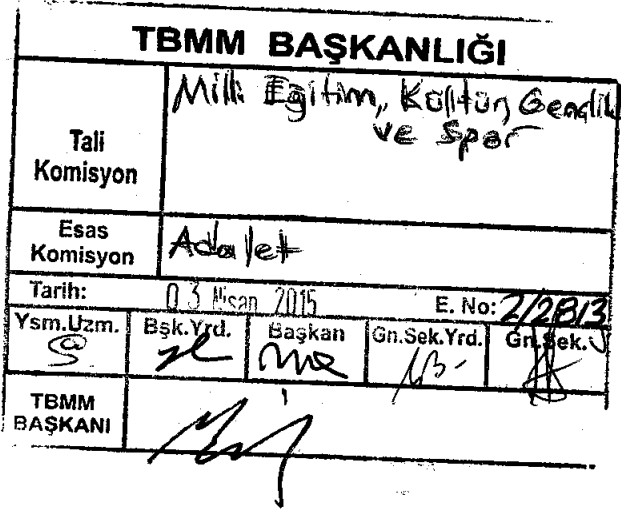 TBMM BAŞKANLIĞI
Tali Komisyon
Milli Eğitim, Kültür, Gençlik
ve Spor
Esas Komisyon
Adalet
Tarih: 03 Nisan 2015 E. No: 2/2813
Ysm.Uzm. Bşk.Yrd. Başkan Gn.Sek.Yrd. Gn.Sek.
TBMM
BAŞKANI